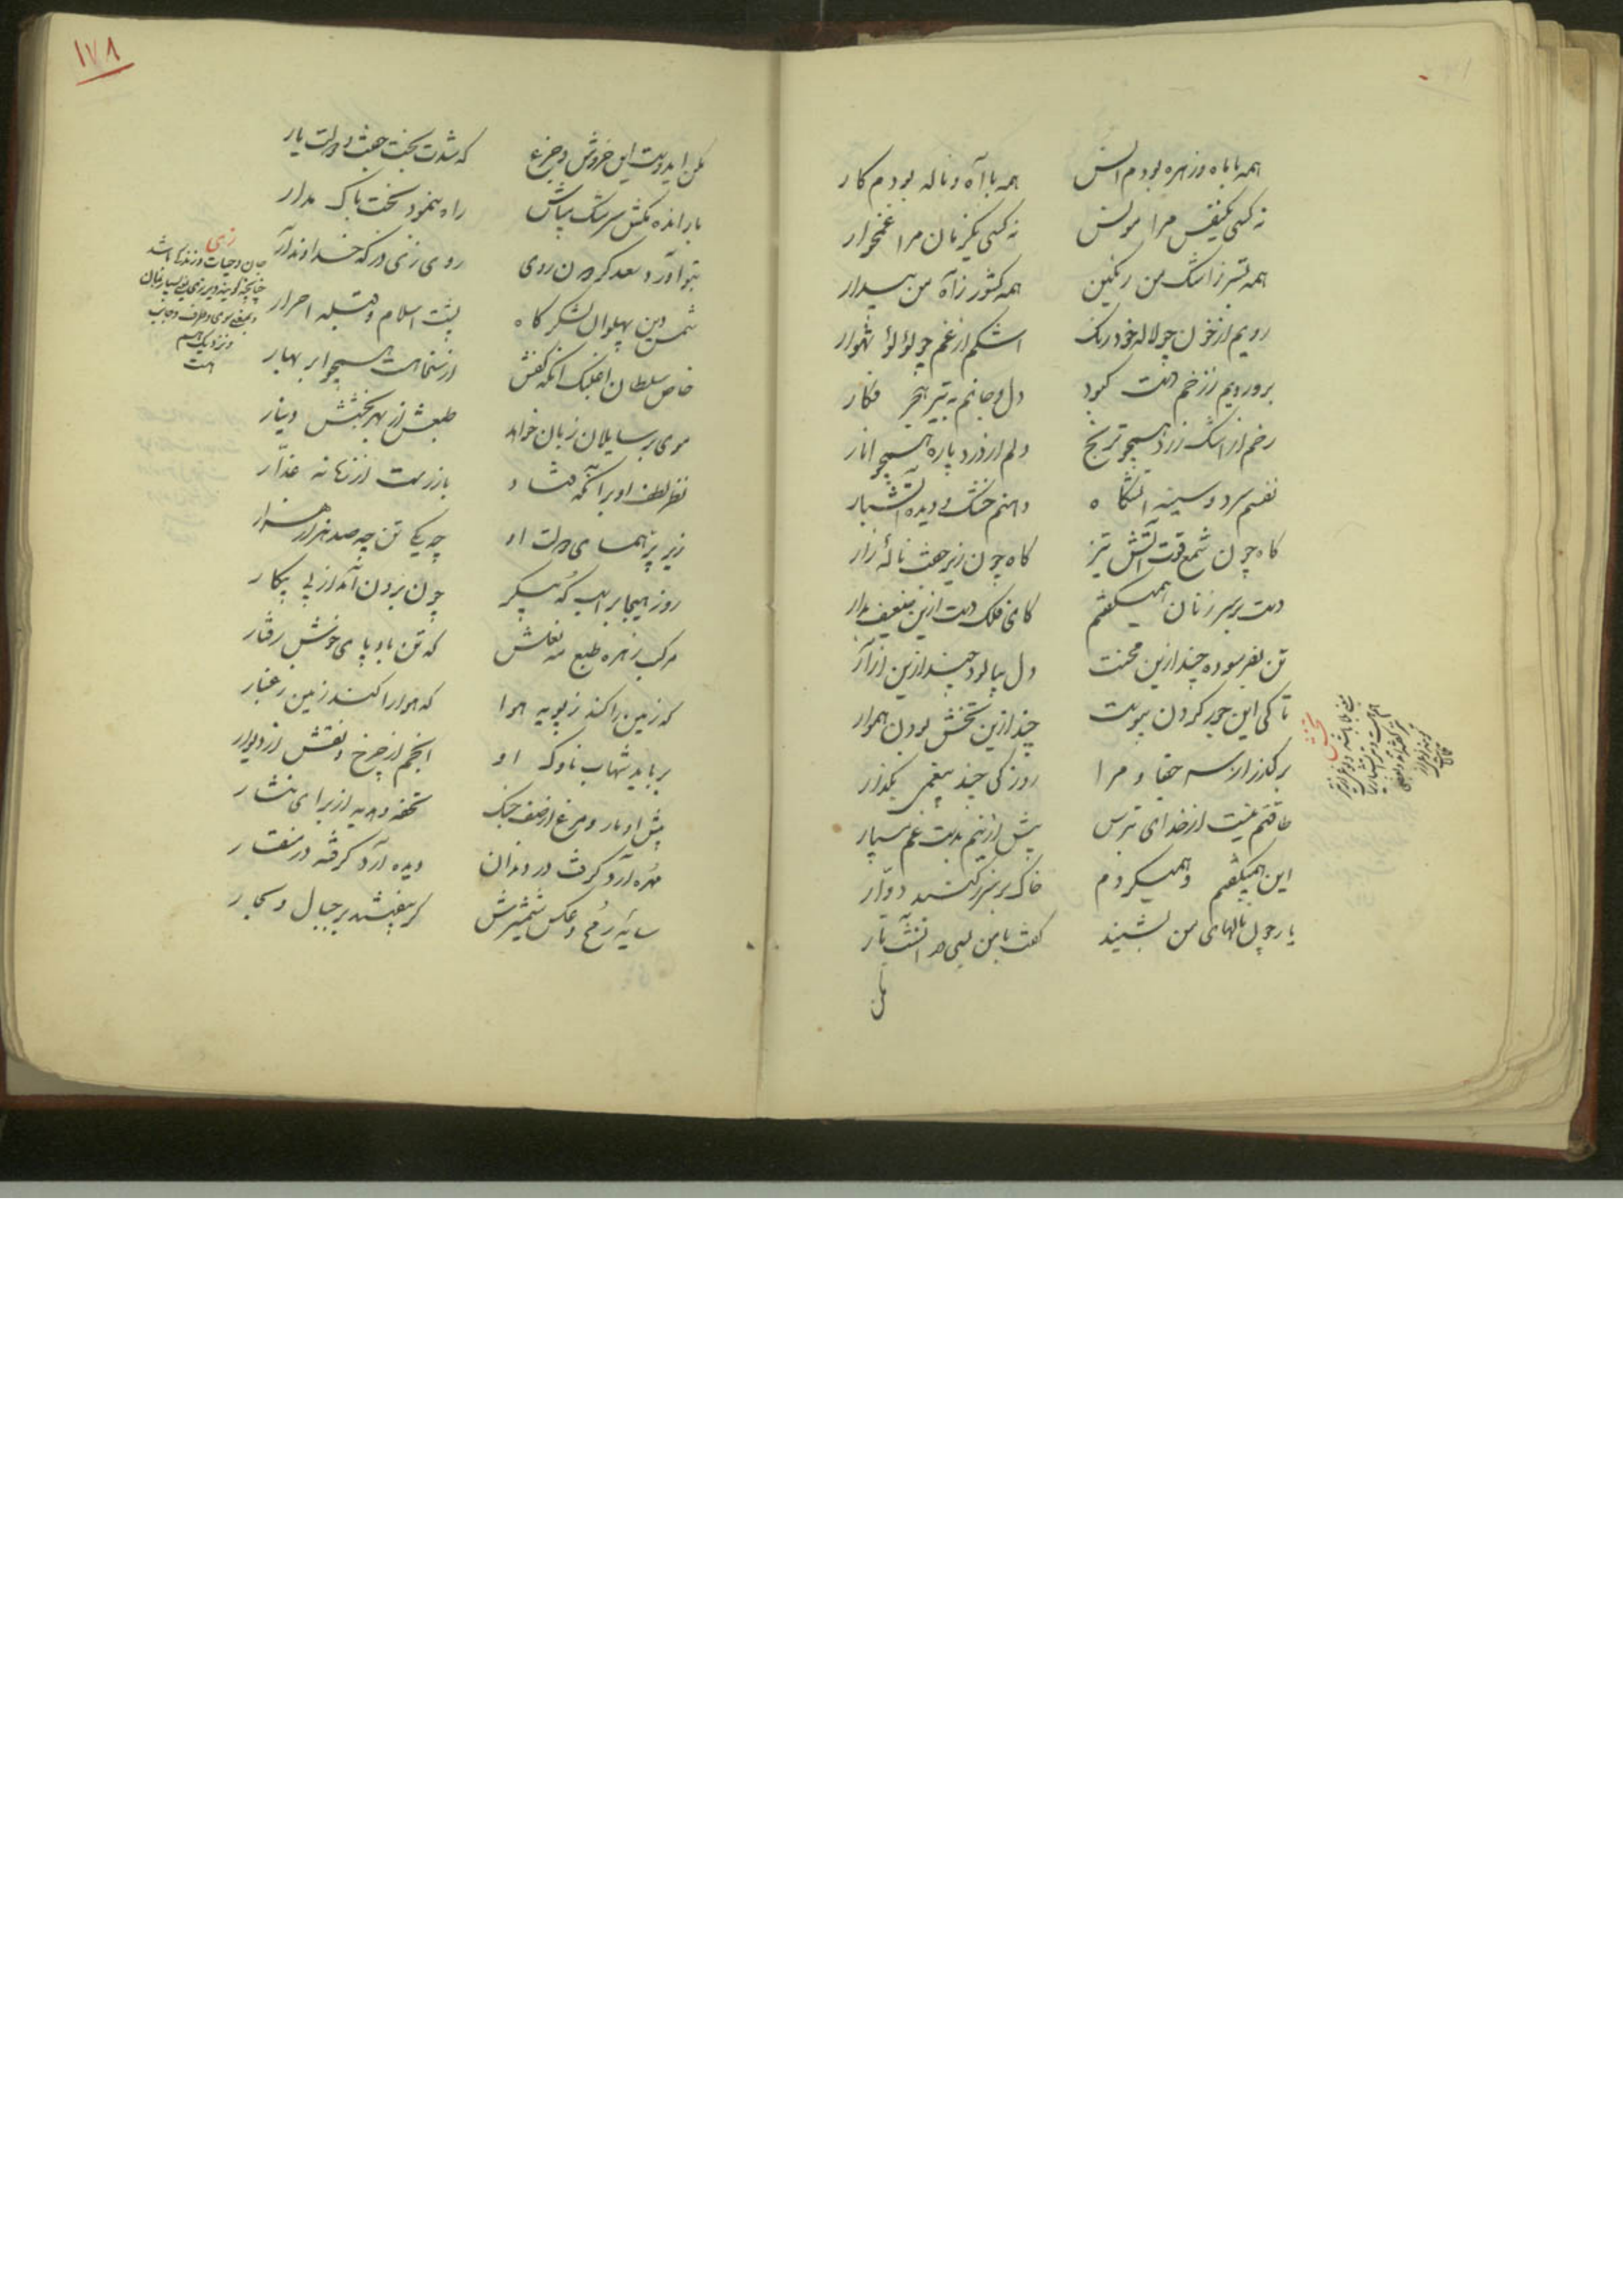 همه با ماه و زهره بودم انس همه با آه و ناله بودم کار
نه کسی یکنفس مرا مونس نه کسی یکزمان مرا غمخوار
همه بستر ز اشک من رنگین همه کشور ز آه من بیدار
رویم از خون چو لاله خودرنگ اشکم از غم چو لؤلؤ شهوار
بر و رویم ز زخم دست کبود دل و جانم به تیر هجر فکار
رخم از اشک زرد همچو ترنج دلم از درد پاره همچو انار
نفسم سرد و سینه آتشگاه دهنم خشک و دیده آتشبار
گاه چون شمع قوت آتش تیز گاه چون زیر جفت نالهٔ زار
دست بر سر زنان همیگفتم کای فلک دست ازین ضعیف بدار
تن بفرسوده چند ازین محنت دل بپالود چند ازین آزار
تا کی این جور کردن پیوست چند ازین تخش بودن هموار
برگذار از سر جفا و مرا روزکی چند بیغمی بگذار
طاقتم نیست از خدای بترس بیش ازینم بدست غم مسپار
این همیگفتم و همیکردم خاک بر سر ز گنبد دوّار
یار چون نالهای من بشنید گفت با من بسی در آنشب تار
مکن
تخش
۱۷۸
مکن ایدوست این خروش و جزع که شدت بخت جفت و دولت یار
بار انده مکش سرشک مپاش راه بنمود بخت باک مدار
بتو آورد سعد گردون روی روی زی درگه خداوند آر
شمس دین پهلوان لشکر کاه پشت اسلام و قبله احرار
خاص سلطان اغلبک آنکه کفش از سخا هست همچو ابر بهار
موی بر سایلان زبان خواهد طبعش از بهر بخشش دینار
نظر لطف او بر آنکه فتاد باز رست از زمانه غدّار
زیر پر همای دولت او چه یکی تن چه صد هزار هزار
روز هیجا بر اسب که پیکر چون برون آمد از پی پیکار
مرکب زهره طبع مه نعلش که تن باد پای خوش رفتار
که زمین را کند ز پویه هوا که هوا را کند زمین ز غبار
برباید شهاب ناوک او انجم از چرخ و نقش از دیوار
پیش او مار و مرغ از صف جنگ تحفه و هدیه از برای نثار
مهره آرد گرفته در دندان دیده آرد گرفته در منقار
سایهٔ رمح و عکس شمشیرش گر بیفتند بر جبال و بحار
زی
جان و حیات و زندگی باشد
چنانچه گویند دیر زی یعنی بسیار بمان
و بمعنی سوی و طرف و جانب
و نزدیک هم
هست